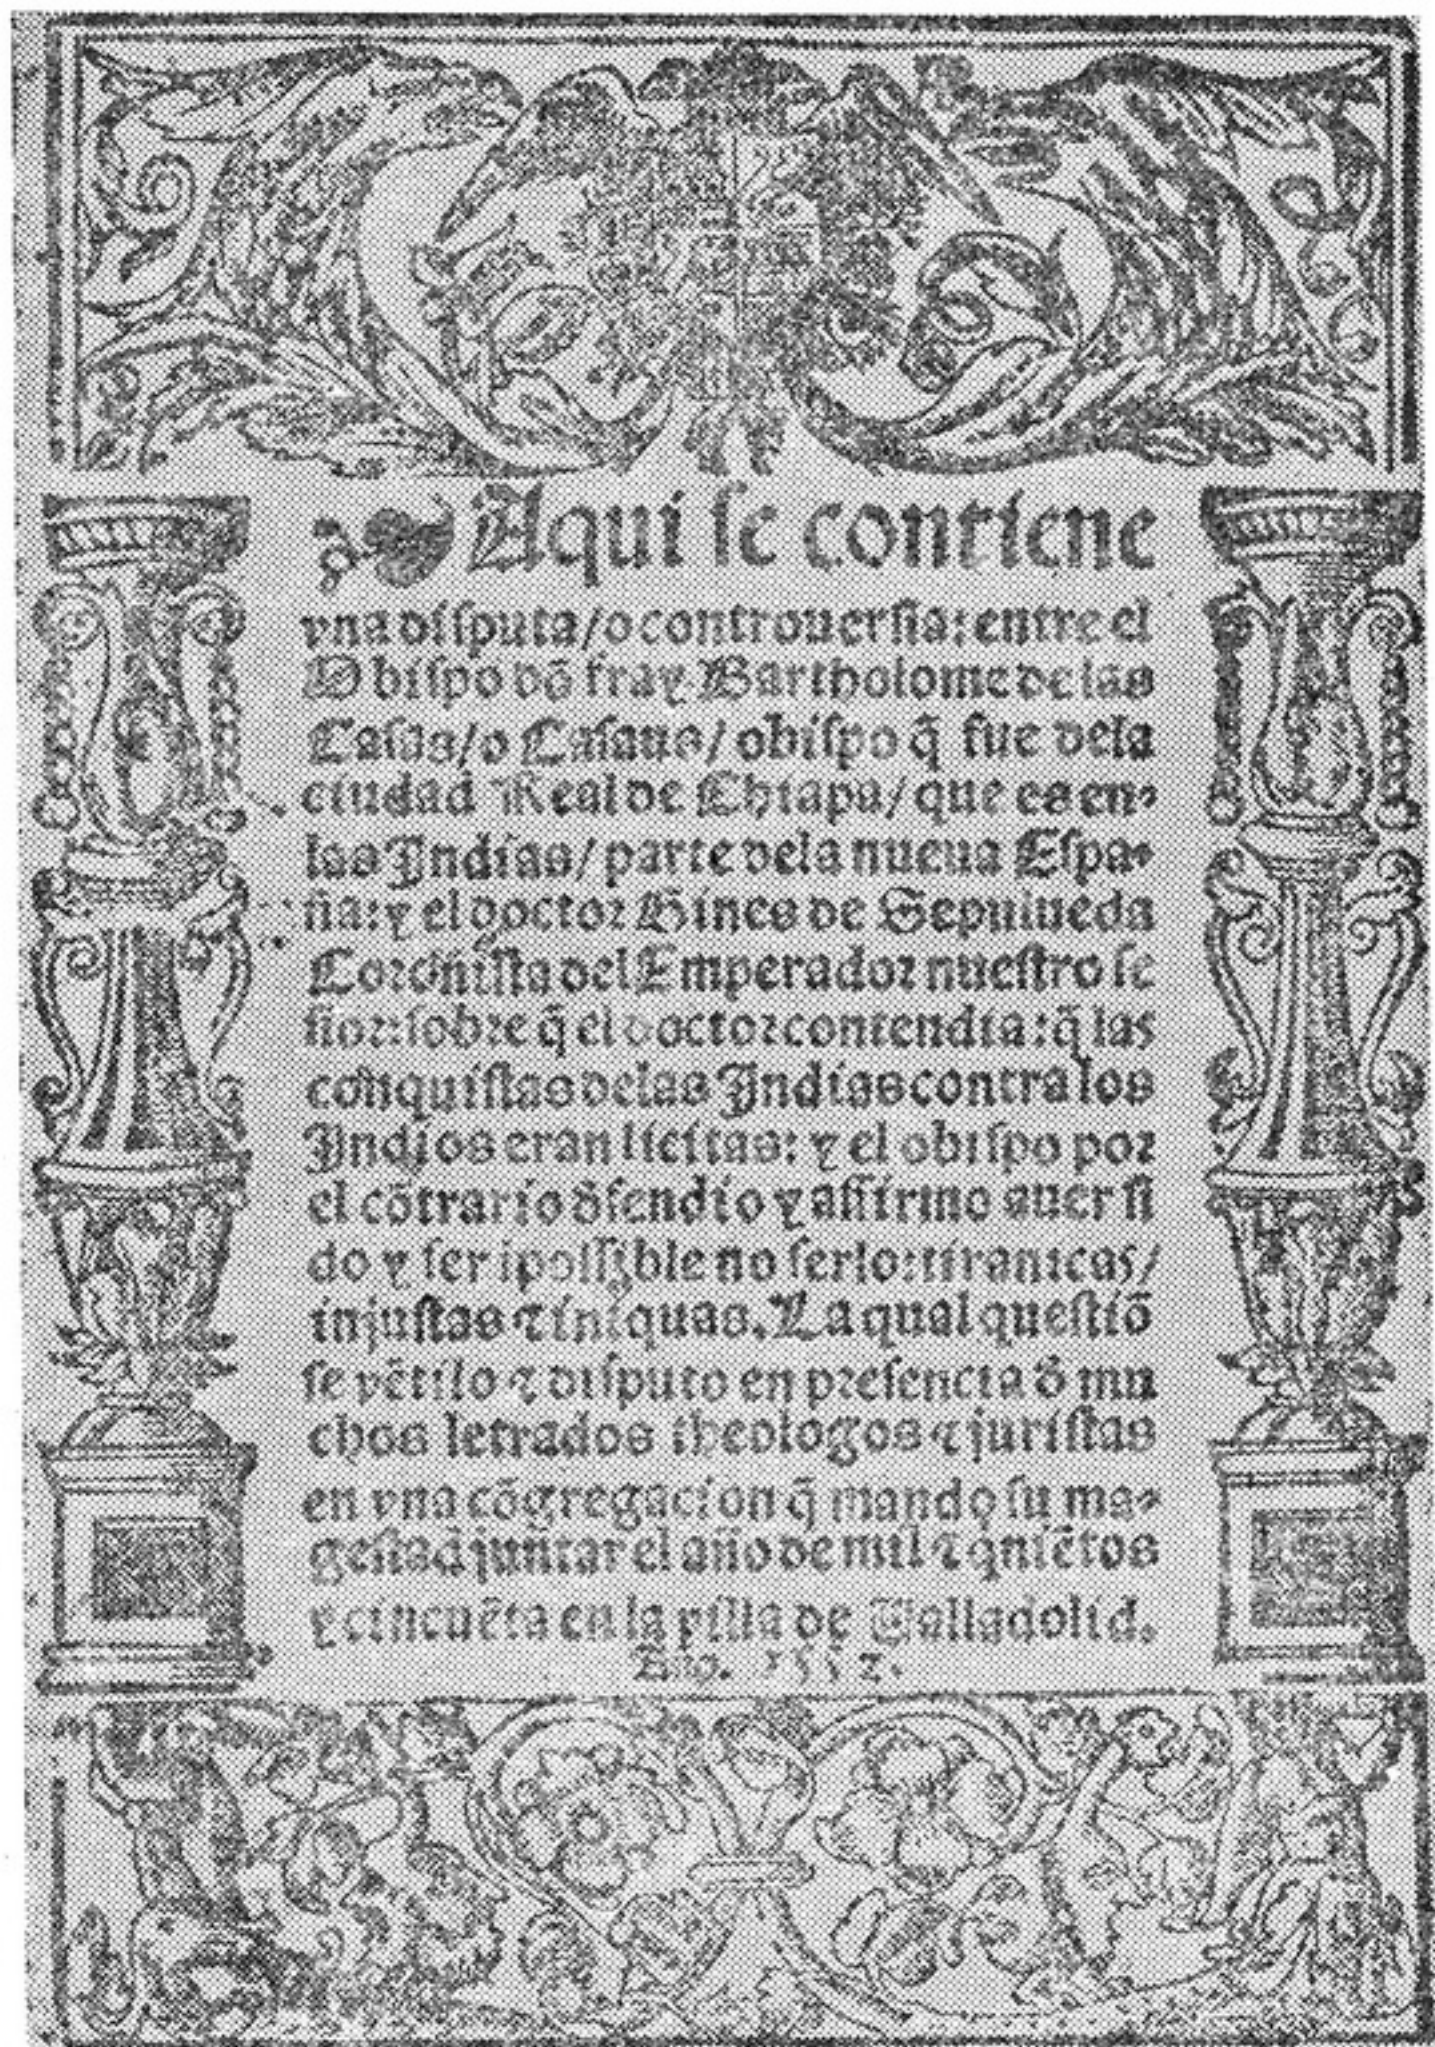 Aqui se contiene
vna disputa/o controuersia: entre el
Obispo dõ fray Bartholome de las
Casas/o Casaus/obispo q̃ fue dela
ciudad Real de Chiapa/que es en-
las Indias/parte dela nueua Espa-
ña: y el doctor Gines de Sepulueda
Coronista del Emperador nuestro se
ñor: sobre q̃ el doctor contendia: q̃ las
conquistas delas Indias contra los
Indios eran licitas: y el obispo por
el cõtrario d̃fendio y affirmo auer si
do y ser ĩpossible no serlo: tiranicas/
injustas ⁊ iniquas. La qual questiõ
se vẽtilo ⁊ disputo en presencia d̃ mu
chos letrados theologos ⁊ juristas
en vna cõgregacion q̃ mando su ma-
gestad juntar el año de mil ⁊ qniẽtos
y cincuẽta en la villa de Valladolid.
Año. 1552.